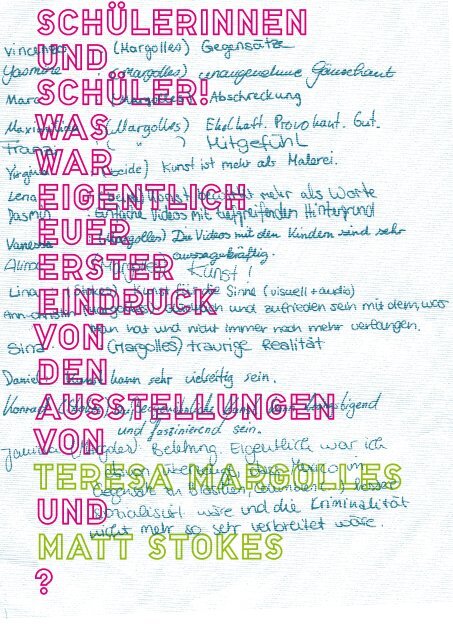 SCHÜLERINNEN
Vincenzo (Margolles) Gegensätze
UND
Yasmine (Margolles) unangenehme Gänsehaut
SCHÜLER!
Mara (Margolles) Abschreckung
WAS
(Margolles) Ekelhaft. Provokant. Gut.
Franzi ( " ) Mitgefühl
WAR
Virginia Kunst ist mehr als Malerei.
EIGENTLICH
Lena mehr als Worte
Yasmin Videos mit tiefgreifenden Hintergrund
EUER
Vanessa (Margolles) Die Videos mit den Kindern sind sehr
aussagekräftig.
ERSTER
Alina Kunst!
EINDRUCK
Lina (Stokes) Kunst für die Sinne (visuell + audio)
Ann-Christin und zufrieden sein mit dem, was
man hat und nicht immer noch mehr verlangen.
VON
Sina (Margolles) traurige Realität
DEN
Daniel Kunst kann sehr vielseitig sein.
AUSSTELLUNGEN
Konrad kann
und faszinierend sein.
VON
Belehrung. Eigentlich war ich
TERESA MARGOLLES
UND
wäre und die Kriminalität
nicht mehr so sehr verbreitet wäre.
MATT STOKES
?